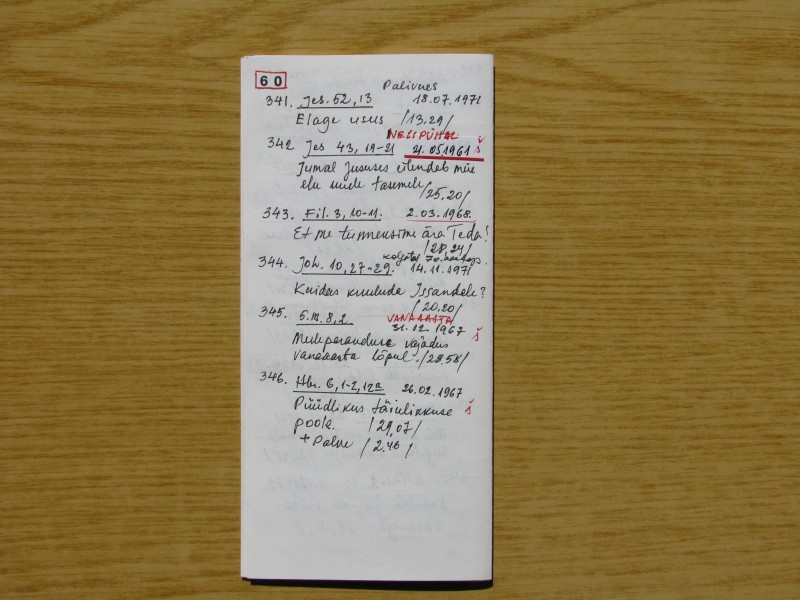 60
Palivere
341. Jes. 52, 13 18.07.1971
Elage usus /13.29/
NELIPÜHAL
342 Jes 43, 19-21 21.05.1961 š
Jumal Jeesuses eilendab meie
elu uude tasemele /25.20/
343. Fil. 3, 10-11. 2.03.1968.
Et me tunneksime ära Teda!
/28,24/
344. Joh. 10, 27-29. 14.11.1971
Kuidas kuulada Issandale?
/20.20/
VANAAASTA
345. 5.M. 8, 2 31.12 1967 š
Meeleparanduse vajadus
vanaaasta lõpul. /28.58/
346. Hbr. 6, 1-2, 12a 26.02.1967
Püüdlikus täiuslikkuse š
poole. /29,07/
+ Palve /2.46/